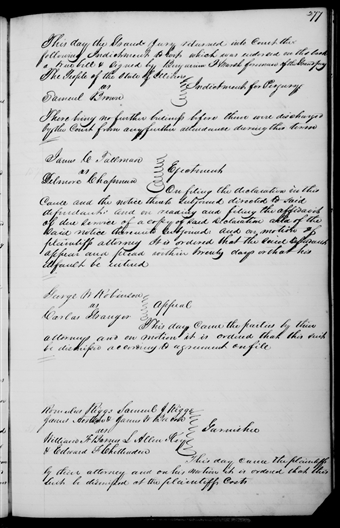 277
This day the Grand Jury returned into Court the
following Indictment to wit which was endorsed on the back
a true bill & signed by Benjamin foreman of the Grand Jury
The People of the State of Illinois
vs Indictment for Perjury
Samuel Brown
There being no further business before them were discharged
by the Court from any further attendance during this term
James C.
vs Ejectment
Chapman
On filing the declaration in this
Cause and the notice thereto subjoined directed to said
defendant and on reading and filing the affidavit
of due service of a copy of said declaration and of the
said notice thereunto subjoined and on motion of
plaintiffs attorney It is ordered that the said defendant
appear and plead within twenty days or that his
default be entered
George W Robinson
vs Appeal
Carlos Granger
This day came the parties by their
attorneys and on motion it is ordered that this suit
be dismissed according to agreement on file
Romulus Riggs Samuel J Riggs
James & James W
vs Garnishee
William F Allen
& Edward Chittenden
This day came the plaintiffs
by their attorney and on his motion it is ordered that this
suit be dismissed at the plaintiffs Costs